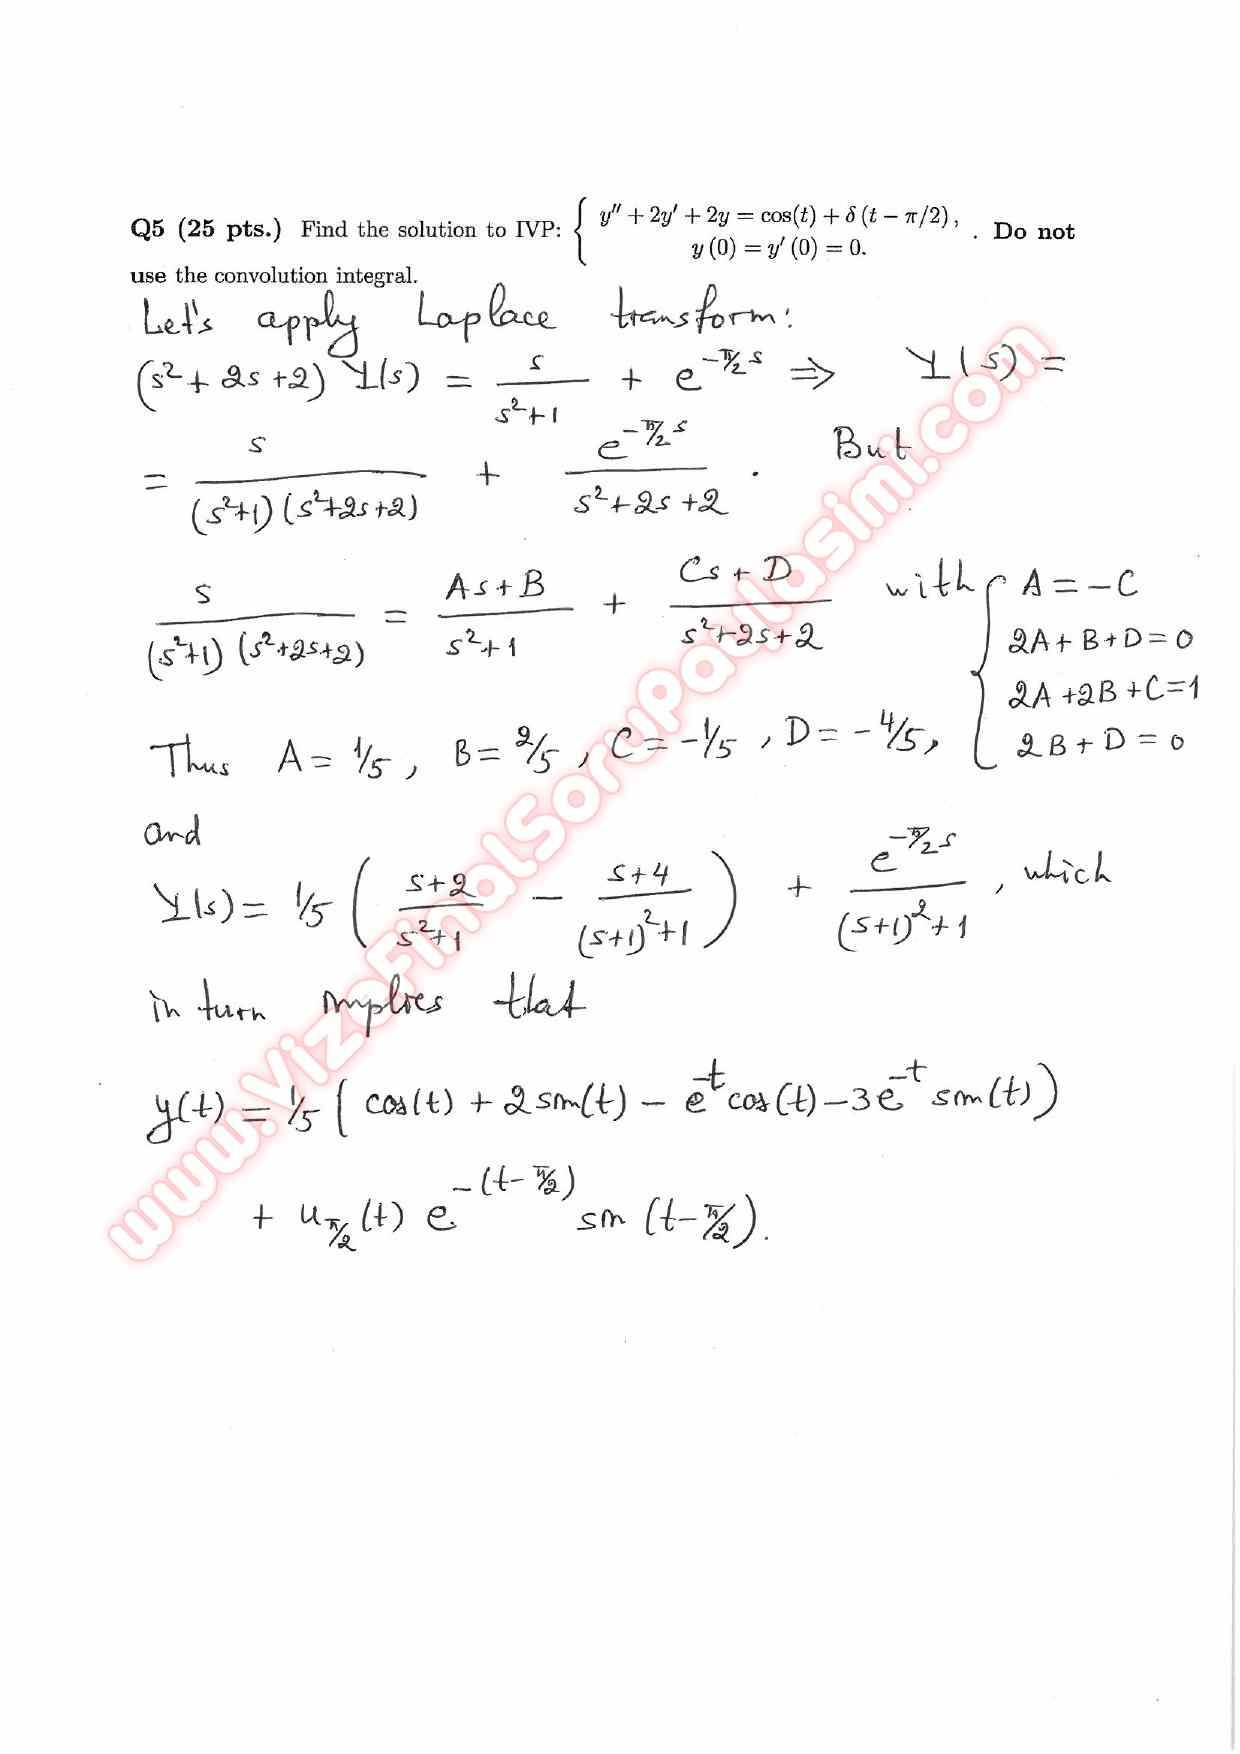 Q5 (25 pts.) Find the solution to IVP: { y″ + 2y′ + 2y = cos(t) + δ (t − π/2) ,
y (0) = y′ (0) = 0. . Do not
use the convolution integral.
Let's apply Laplace transform:
(s²+ 2s +2) Y(s) = s/(s²+1) + e^(-π/2 s) ⇒ Y(s) =
= s/((s²+1)(s²+2s+2)) + e^(-π/2 s)/(s²+2s+2) . But
s/((s²+1)(s²+2s+2)) = (As+B)/(s²+1) + (Cs+D)/(s²+2s+2) with { A = -C
2A+B+D=0
2A+2B+C=1
2B+D=0
Thus A = 1/5, B = 2/5, C = -1/5, D = -4/5,
and
Y(s) = 1/5 ( (s+2)/(s²+1) - (s+4)/((s+1)²+1) ) + e^(-π/2 s)/((s+1)²+1) , which
in turn implies that
y(t) = 1/5 ( cos(t) + 2 sin(t) - e^(-t) cos(t) - 3e^(-t) sin(t) )
+ u_(π/2)(t) e^(-(t-π/2)) sin (t-π/2).
www.VizeFinalSoruPaylasimi.com